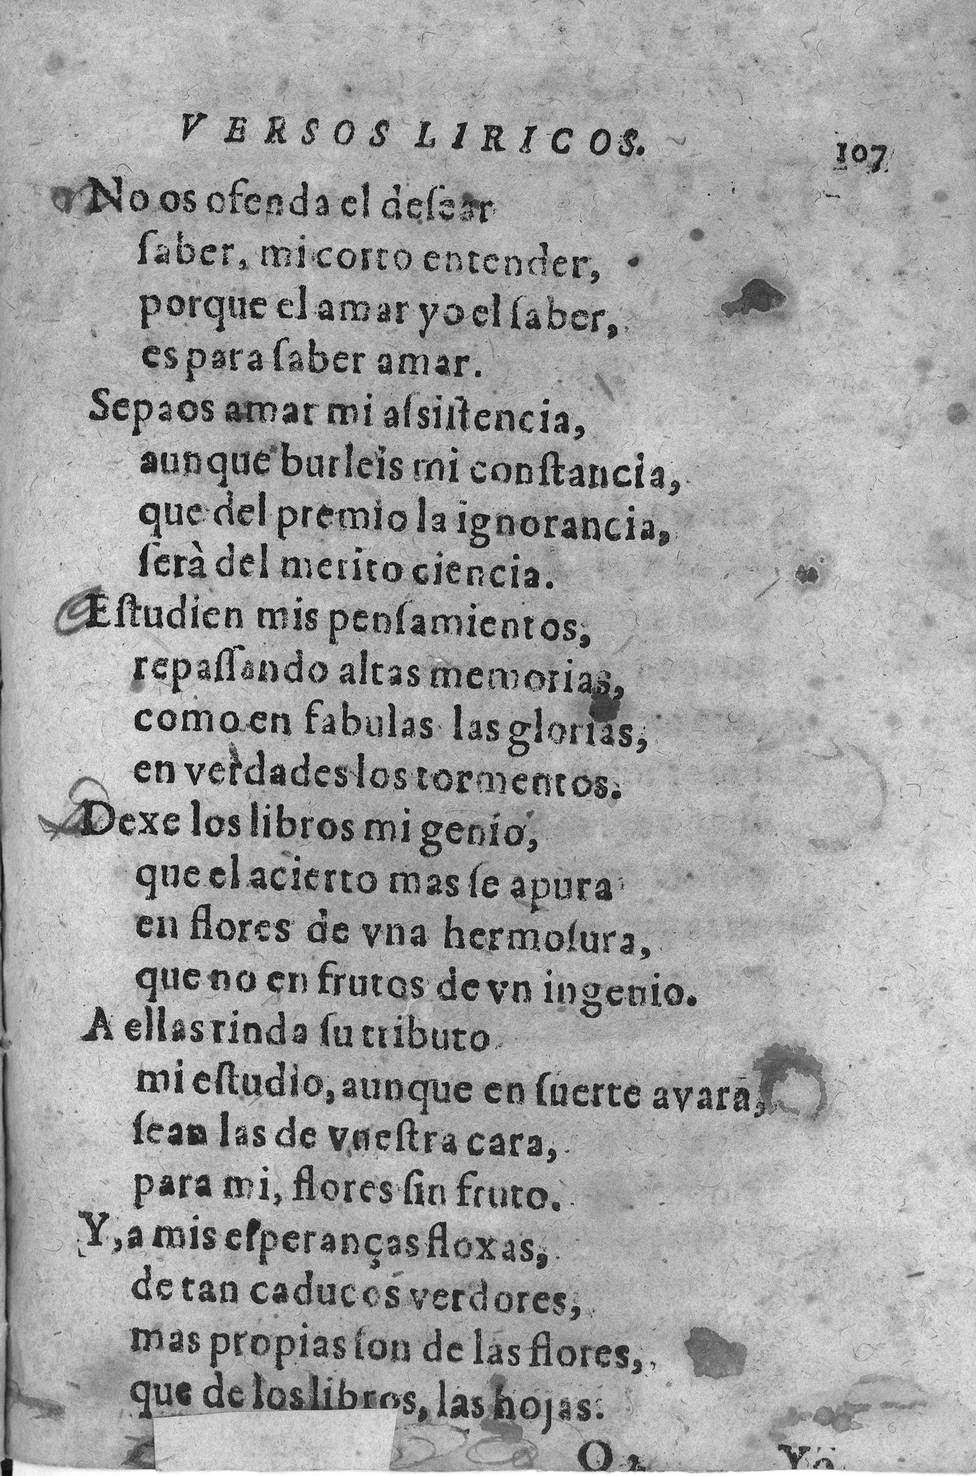 VERSOS LIRICOS.
107
No os ofenda el deſear
ſaber, mi corto entender,
porque el amar yo el ſaber,
es para ſaber amar.
Sepaos amar mi aſsiſtencia,
aunque burleis mi conſtancia,
que del premio la ignorancia,
ſerà del merito ciencia.
Eſtudien mis penſamientos,
repaſſando altas memorias,
como en fabulas las glorias,
en verdades los tormentos.
Dexe los libros mi genio,
que el acierto mas ſe apura
en flores de vna hermoſura,
que no en frutos de vn ingenio.
A ellas rinda ſu tributo
mi eſtudio, aunque en ſuerte avara,
ſean las de vueſtra cara,
para mi, flores ſin fruto.
Y, a mis eſperanças floxas,
de tan caducos verdores,
mas propias ſon de las flores,
que de los libros, las hojas.
O
Yo